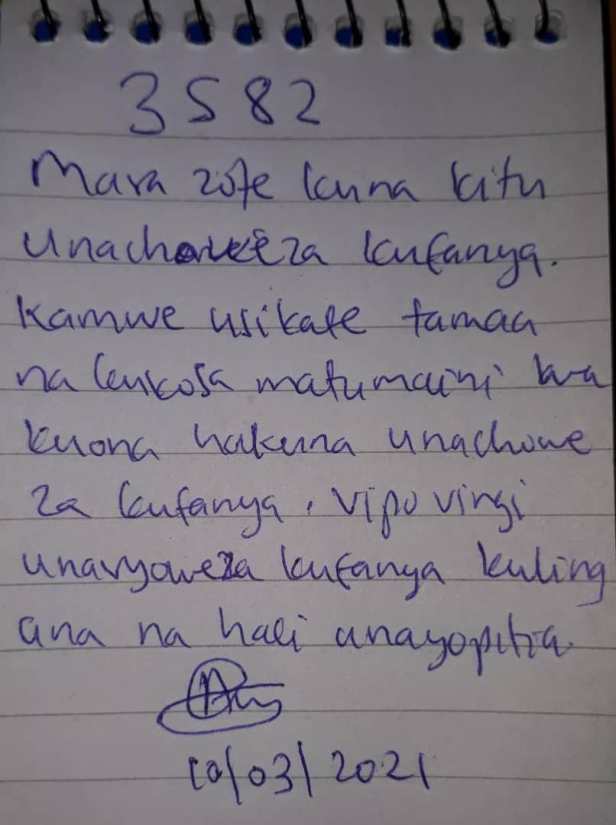 3582
Mara zote kuna kitu
unachoweza kufanya.
Kamwe usikate tamaa
na kukosa matumaini kwa
kuona hakuna unachowe
za kufanya. Vipo vingi
unavyoweza kufanya kuling
ana na hali unayopitia.
10/03/2021